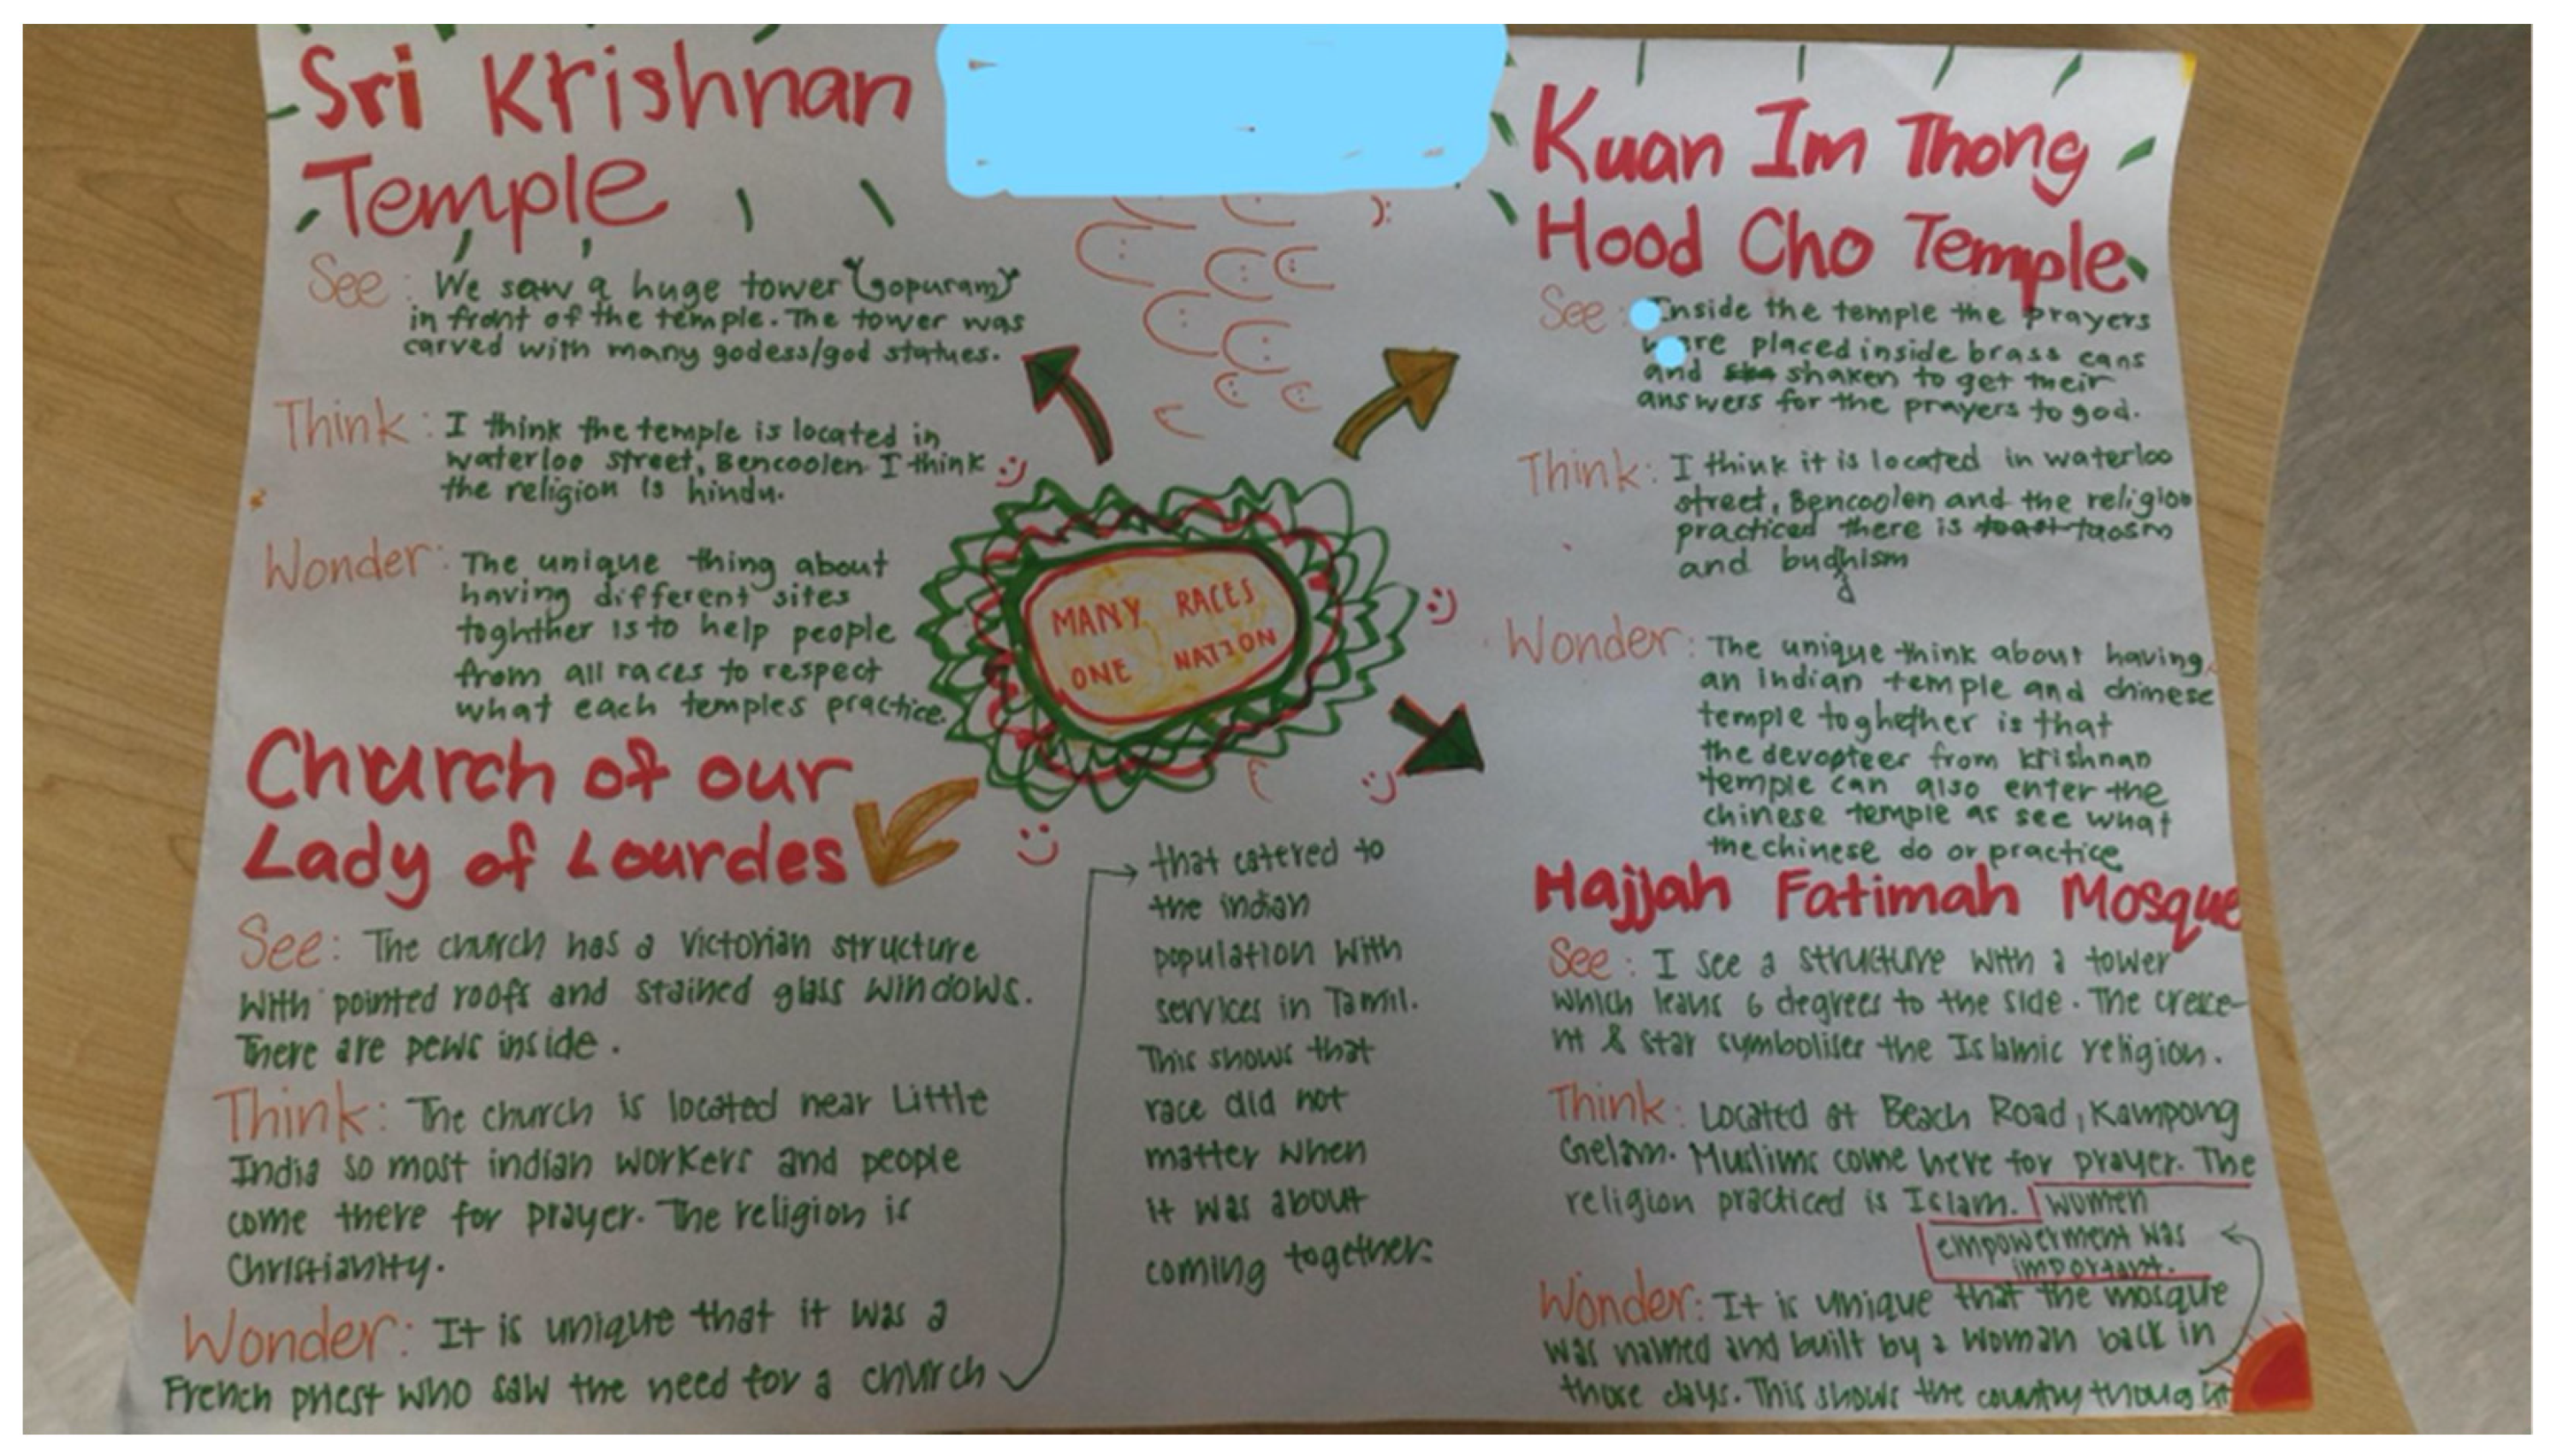 Sri Krishnan
Temple
See: We saw a huge tower (gopuram)
in front of the temple. The tower was
carved with many godess/god statues.
Think: I think the temple is located in
waterloo street, Bencoolen. I think
the religion is hindu.
Wonder: The unique thing about
having different sites
toghther is to help people
from all races to respect
what each temples practice.
Church of our
Lady of Lourdes
See: The church has a Victorian structure
with pointed roofs and stained glass windows.
There are pews inside.
Think: The church is located near Little
India so most indian workers and people
come there for prayer. The religion is
Christianity.
Wonder: It is unique that it was a
French priest who saw the need for a church
that catered to
the indian
population with
services in Tamil.
This shows that
race did not
matter when
it was about
coming together.
MANY RACES
ONE NATION
Kuan Im Thong
Hood Cho Temple
See: Inside the temple the prayers
were placed inside brass cans
and shaken to get their
answers for the prayers to god.
Think: I think it is located in waterloo
street, Bencoolen and the religion
practiced there is taosm
and budhism
d
Wonder: The unique think about having
an indian temple and chinese
temple toghether is that
the devopteer from krishnan
temple can also enter the
chinese temple as see what
the chinese do or practice
Hajjah Fatimah Mosque
See: I see a structure with a tower
which leans 6 degrees to the side. The cresce-
nt & star symbolises the Islamic religion.
Think: Located at Beach Road, Kampong
Gelam. Muslims come here for prayer. The
religion practiced is Islam.
Wonder: It is unique that the mosque
was named and built by a woman back in
those days. This shows the country thought
women
empowerment was
important.